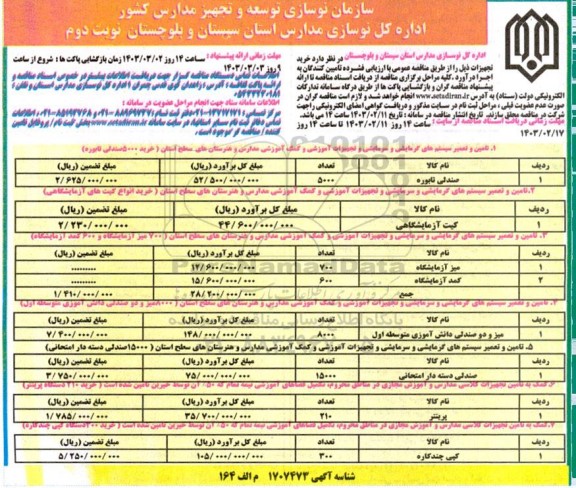 سازمان نوسازی توسعه و تجهیز مدارس کشور
اداره کل نوسازی مدارس استان سیستان و بلوچستان نوبت دوم
اداره کل نوسازی مدارس استان سیستان و بلوچستان در نظر دارد خرید
تجهیزات ذیل را از طریق مناقصه عمومی با ارزیابی فشرده تامین کنندگان به
اجرا در آورد. کلیه مراحل برگزاری مناقصه از دریافت اسناد مناقصه تا ارائه
پیشنهاد مناقصه گران و بازگشایی پاکت ها از طریق درگاه سامانه تدارکات
الکترونیکی دولت (ستاد) به آدرس www.setadiran.ir انجام خواهد شد و لازم است مناقصه گران در
صورت عدم عضویت قبلی، مراحل ثبت نام در سایت مذکور و دریافت گواهی امضای الکترونیکی را جهت
شرکت در مناقصه محقق سازند. تاریخ انتشار مناقصه در سامانه: تاریخ ۱۴۰۳/۰۲/۱۱ ساعت ۱۴ می باشد.
مهلت زمانی دریافت اسناد مناقصه از سایت: ساعت ۱۴ روز ۱۴۰۳/۰۲/۱۱ تا ساعت ۱۴ روز
۱۴۰۳/۰۲/۱۷
مهلت زمانی ارائه پیشنهاد: ساعت ۱۴ روز ۱۴۰۳/۰۳/۰۲ زمان بازگشایی پاکت ها: شروع از ساعت
۹ روز ۱۴۰۳/۰۳/۰۳
۱. تامین و تعمیر سیستم های گرمایشی و سرمایشی و تجهیزات آموزشی و کمک آموزشی مدارس و هنرستان های سطح استان ( خرید ۵۰۰۰ صندلی تابوره )
ردیف نام کالا تعداد مبلغ کل برآورد (ریال) مبلغ تضمین (ریال)
۱ صندلی تابوره ۵۰۰۰ ۵۲/۵۰۰/۰۰۰/۰۰۰ ۲/۶۲۵/۰۰۰/۰۰۰
۲. تامین و تعمیر سیستم های گرمایشی و سرمایشی و تجهیزات آموزشی و کمک آموزشی مدارس و هنرستان های سطح استان ( خرید انواع کیت های آزمایشگاهی )
ردیف نام کالا مبلغ کل برآورد (ریال) مبلغ تضمین (ریال)
۱ کیت آزمایشگاهی ۴۴/۶۰۰/۰۰۰/۰۰۰ ۲/۲۳۰/۰۰۰/۰۰۰
۳. تامین و تعمیر سیستم های گرمایشی و سرمایشی و تجهیزات آموزشی و کمک آموزشی مدارس و هنرستان های سطح استان ( ۷۰۰ میز آزمایشگاه و ۶۰۰ کمد آزمایشگاه )
ردیف نام کالا تعداد مبلغ کل برآورد (ریال) مبلغ تضمین (ریال)
۱ میز آزمایشگاه ۷۰۰ ۱۲/۶۰۰/۰۰۰/۰۰۰ ..........
۲ کمد آزمایشگاه ۶۰۰ ۱۵/۶۰۰/۰۰۰/۰۰۰ ..........
جمع ۲۸/۲۰۰/۰۰۰/۰۰۰ ۱/۴۱۰/۰۰۰/۰۰۰
ردیف نام کالا تعداد مبلغ کل برآورد (ریال) مبلغ تضمین (ریال)
۱ میز و دو صندلی دانش آموزی متوسطه اول ۸۰۰۰ ۱۴۸/۰۰۰/۰۰۰/۰۰۰ ۷/۴۰۰/۰۰۰/۰۰۰
۵. تامین و تعمیر سیستم های گرمایشی و سرمایشی و تجهیزات آموزشی و کمک آموزشی مدارس و هنرستان های سطح استان ( ۱۵۰۰۰ صندلی دسته دار امتحانی )
ردیف نام کالا تعداد مبلغ کل برآورد (ریال) مبلغ تضمین (ریال)
۱ صندلی دسته دار امتحانی ۱۵۰۰۰ ۷۵/۰۰۰/۰۰۰/۰۰۰ ۳/۷۵۰/۰۰۰/۰۰۰
ردیف نام کالا تعداد مبلغ کل برآورد (ریال) مبلغ تضمین (ریال)
۱ پرینتر ۲۱۰ ۳۵/۷۰۰/۰۰۰/۰۰۰ ۱/۷۸۵/۰۰۰/۰۰۰
ردیف نام کالا تعداد مبلغ کل برآورد (ریال) مبلغ تضمین (ریال)
۱ کپی چندکاره ۳۰۰ ۱۰۵/۰۰۰/۰۰۰/۰۰۰ ۵/۲۵۰/۰۰۰/۰۰۰
شناسه آگهی ۱۷۰۷۴۷۳ م الف ۱۶۴